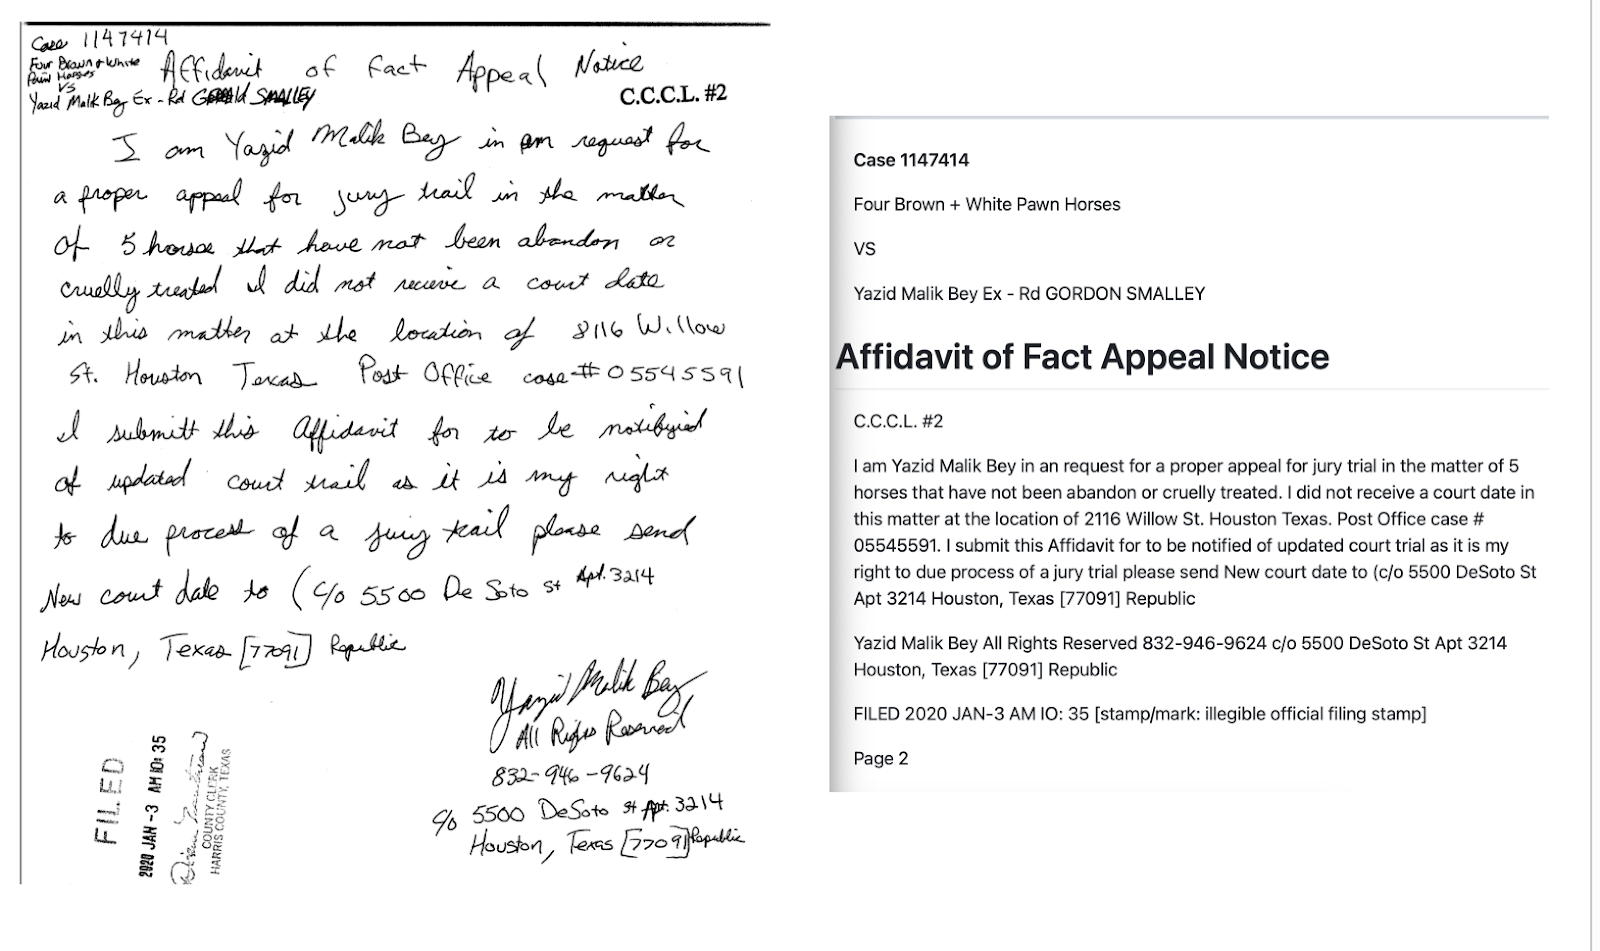 Case 1147414
Four Brown + White
Pain Horses
VS
Yazid Malik Bey Ex - Rd GERALD SMALLEY
Affidavit of Fact Appeal Notice
C.C.C.L. #2
I am Yazid Malik Bey in an request for
a proper appeal for jury trail in the matter
of 5 horse that have not been abandon or
cruelly treated I did not recieve a court date
in this matter at the location of 8116 Willow
St. Houston Texas Post Office case # 05545591
I submitt this Affidavit for to be notifyied
of updated court trail as it is my right
to due process of a jury trail please send
New court date to ( c/o 5500 De Soto St Apt. 3214
Houston, Texas [77091] Republic
Yazid Malik Bey
All Rights Reserved
832-946-9624
c/o 5500 DeSoto St Apt. 3214
Houston, Texas [77091] Republic
FILED
2020 JAN -3 AM 10: 35
COUNTY CLERK
HARRIS COUNTY, TEXAS
Case 1147414
Four Brown + White Pawn Horses
VS
Yazid Malik Bey Ex - Rd GORDON SMALLEY
Affidavit of Fact Appeal Notice
C.C.C.L. #2
I am Yazid Malik Bey in an request for a proper appeal for jury trial in the matter of 5
horses that have not been abandon or cruelly treated. I did not receive a court date in
this matter at the location of 2116 Willow St. Houston Texas. Post Office case #
05545591. I submit this Affidavit for to be notified of updated court trial as it is my
right to due process of a jury trial please send New court date to (c/o 5500 DeSoto St
Apt 3214 Houston, Texas [77091] Republic
Yazid Malik Bey All Rights Reserved 832-946-9624 c/o 5500 DeSoto St Apt 3214
Houston, Texas [77091] Republic
FILED 2020 JAN-3 AM IO: 35 [stamp/mark: illegible official filing stamp]
Page 2